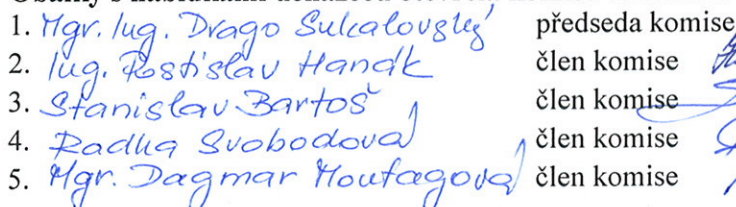 1. Mgr. Ing. Drago Sukalovský předseda komise
2. Ing. Rostislav Handk člen komise
3. Stanislav Bartoš člen komise
4. Radka Svobodová člen komise
5. Mgr. Dagmar člen komise